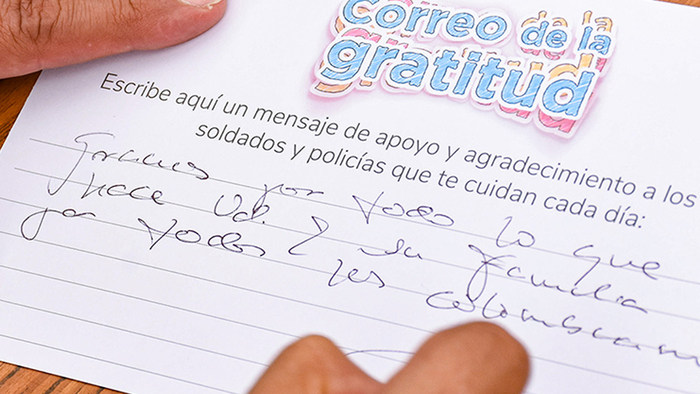 Correo de la
gratitud
Escribe aquí un mensaje de apoyo y agradecimiento a los
soldados y policías que te cuidan cada día:
Gracias por todo lo que
hace Ud. y su familia
por todos los colombian